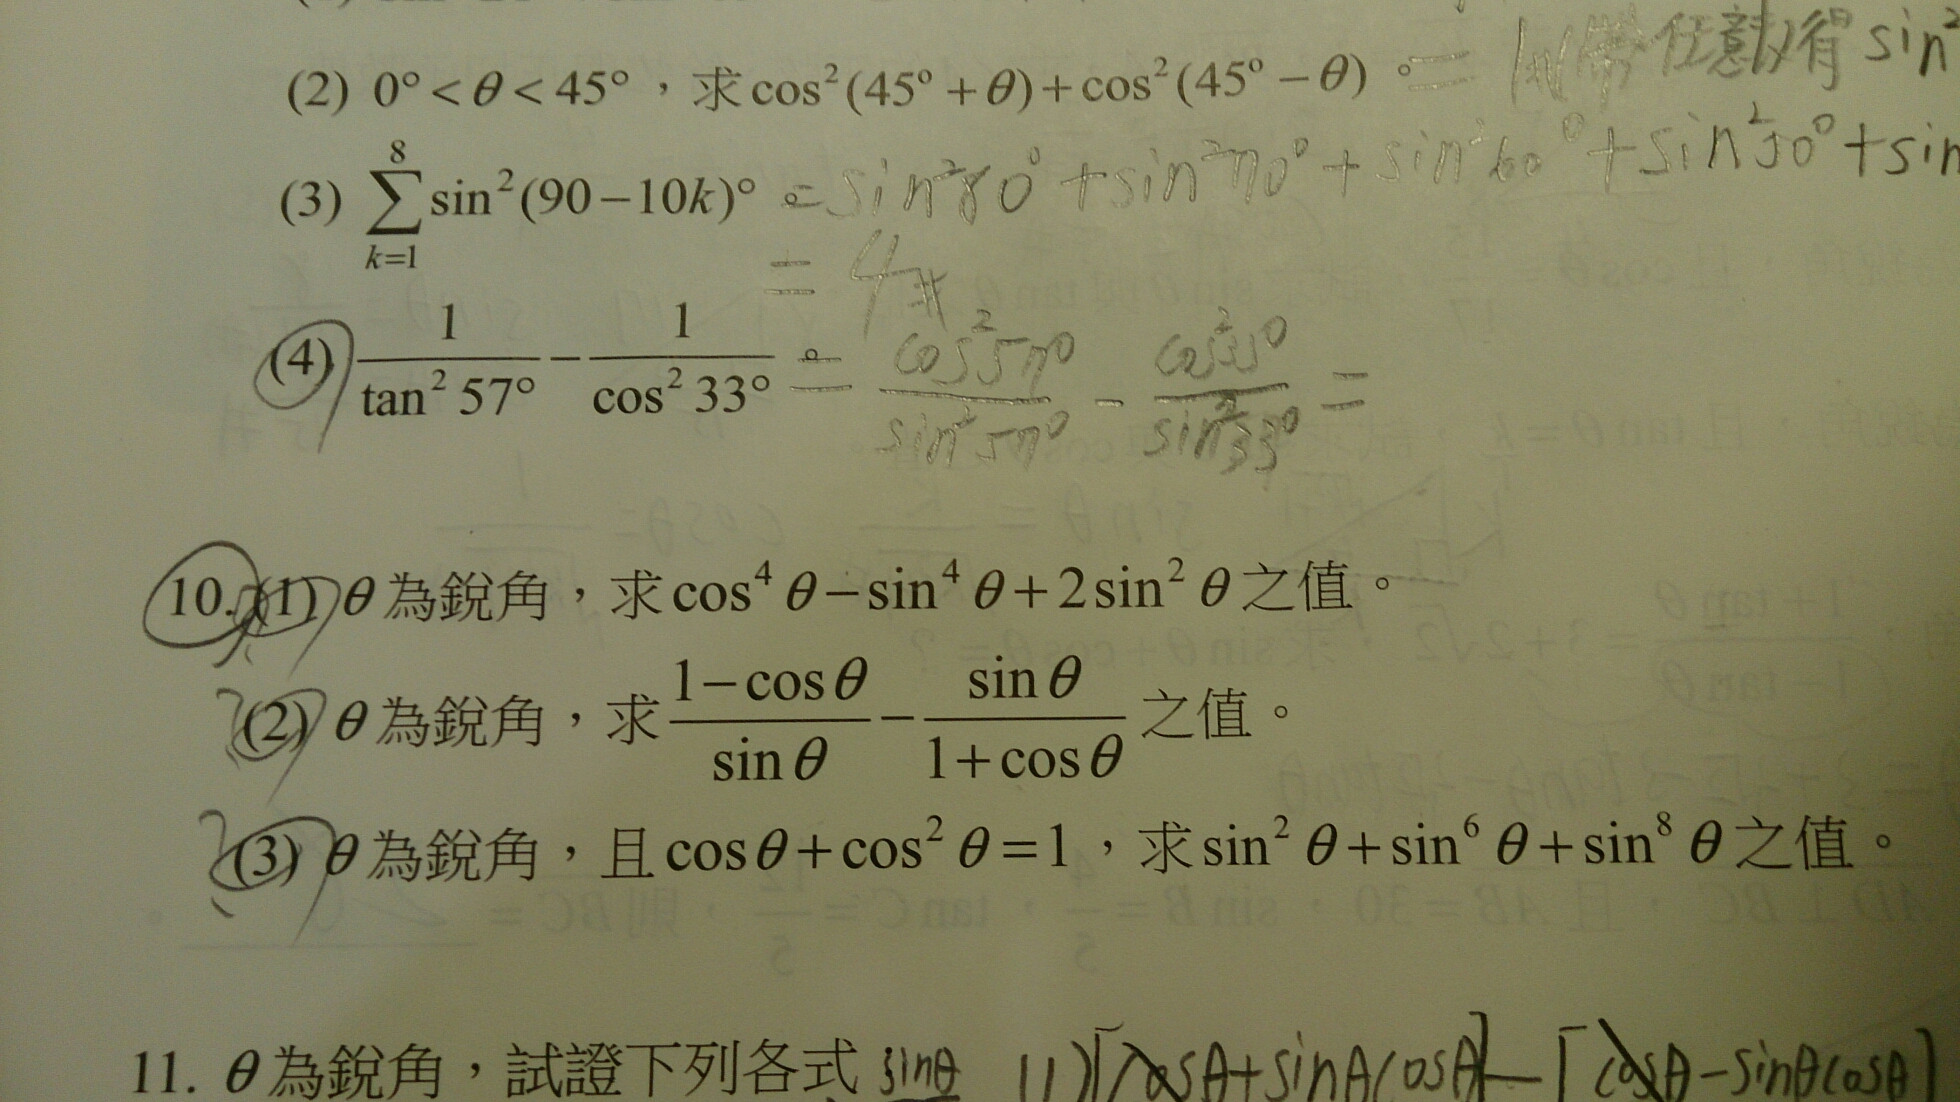 (2) 0° < θ < 45°，求 cos²(45° + θ) + cos²(45° − θ)。= 1 帶任意數得 sin²
(3) ∑_{k=1}^{8} sin²(90 − 10k)°。= sin²80° + sin²70° + sin²60° + sin²50° + sin
= 4
(4) 1/tan²57° − 1/cos²33°。= cos²57°/sin²57° − cos²33°/sin²33° =
10. (1) θ 為銳角，求 cos⁴θ − sin⁴θ + 2sin²θ 之值。
(2) θ 為銳角，求 (1−cosθ)/sinθ − sinθ/(1+cosθ) 之值。
(3) θ 為銳角，且 cosθ + cos²θ = 1，求 sin²θ + sin⁶θ + sin⁸θ 之值。
11. θ 為銳角，試證下列各式 sinθ (1) [cosθ+sinθcosθ] − [cosθ−sinθcosθ]